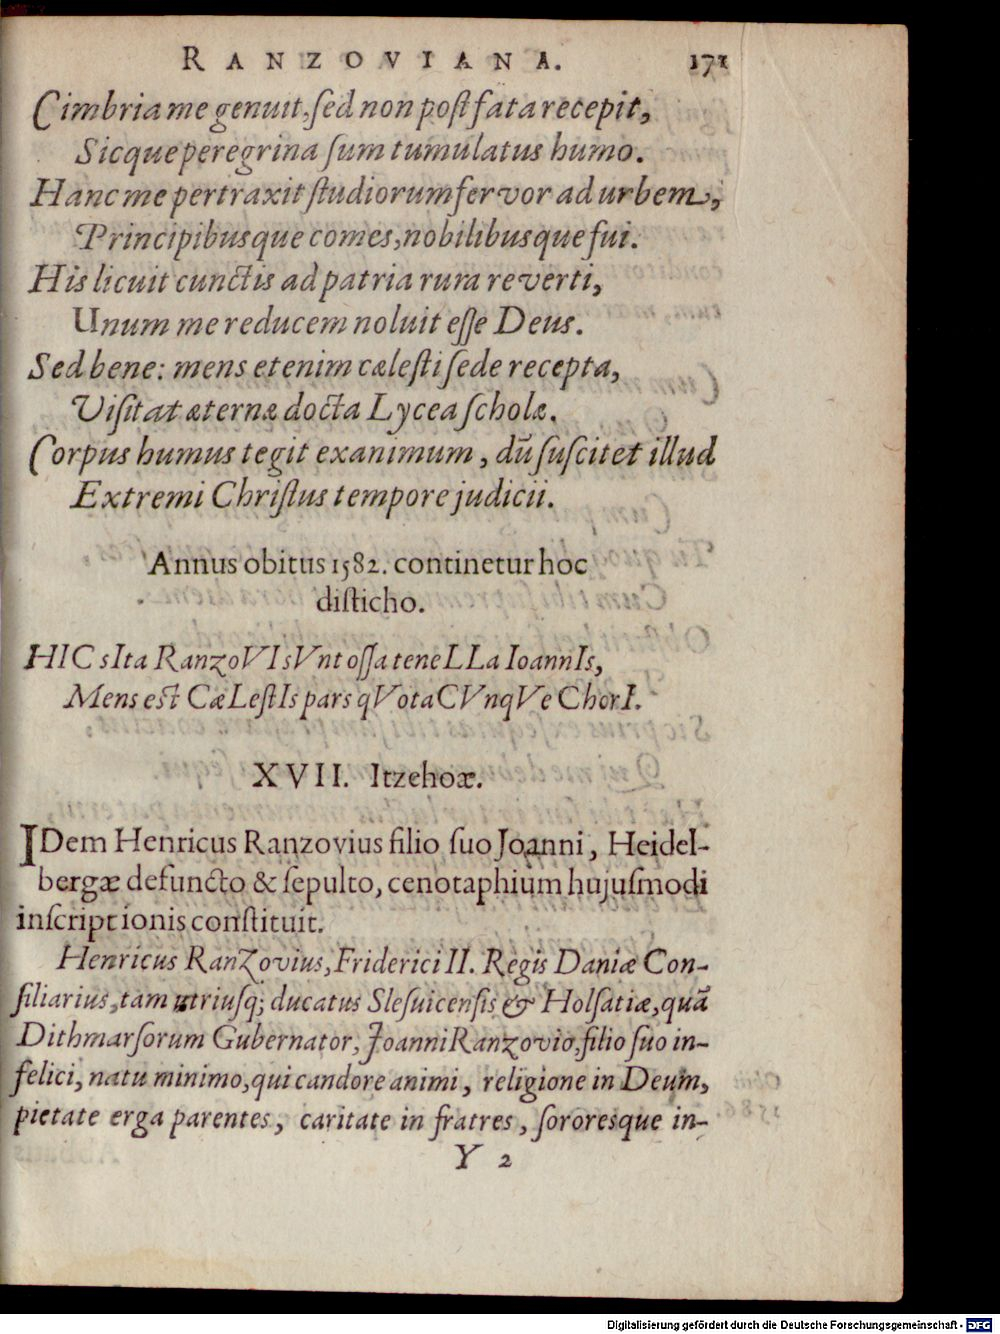 RANZOVIANA. 171
Cimbria me genuit, sed non post fata recepit,
Sicque peregrina sum tumulatus humo.
Hanc me pertraxit studiorum fervor ad urbem,
Principibusque comes, nobilibusque fui.
His licuit cunctis ad patria rura reverti,
Unum me reducem noluit esse Deus.
Sed bene: mens etenim cælesti sede recepta,
Visitat æternæ docta Lycea scholæ.
Corpus humus tegit exanimum, dũ suscitet illud
Extremi Christus tempore judicii.
Annus obitus 1582. continetur hoc
disticho.
HIC sIta RanzoVIsVnt ossa teneLLa IoannIs,
Mens est CæLestIs pars qVotaCVnqVe ChorI.
XVII. Itzehoæ.
IDem Henricus Ranzovius filio suo Joanni, Heidel-
bergæ defuncto & sepulto, cenotaphium hujusmodi
inscriptionis constituit.
Henricus Ranzovius, Friderici II. Regis Daniæ Con-
siliarius, tam utriusq; ducatus Slesuicensis & Holsatiæ, quã
Dithmarsorum Gubernator, Joanni Ranzovio, filio suo in-
felici, natu minimo, qui candore animi, religione in Deum,
pietate erga parentes, caritate in fratres, sororesque in-
Y 2
Digitalisierung gefördert durch die Deutsche Forschungsgemeinschaft - DFG